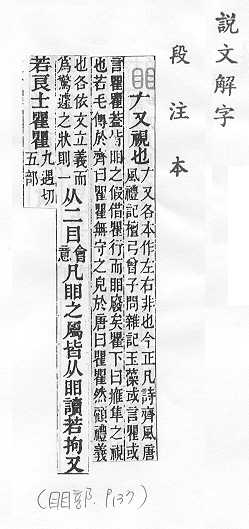 說文解字
段注本
䀠 𠂇又視也 𠂇又各本作左右非也今正凡詩齊風唐
風禮記檀弓曾子問雜記玉藻或言瞿或
言瞿瞿葢皆䀠之假借瞿行而䀠廢矣瞿下曰隼之視
也若毛傳於齊曰瞿瞿無守之皃於唐曰瞿瞿然顧禮義
也各依文立義而
爲驚遽之狀則一
从二目 會意 凡䀠之屬皆从䀠讀若拘又
若良士瞿瞿 九遇切
五部
(䀠部. P137)